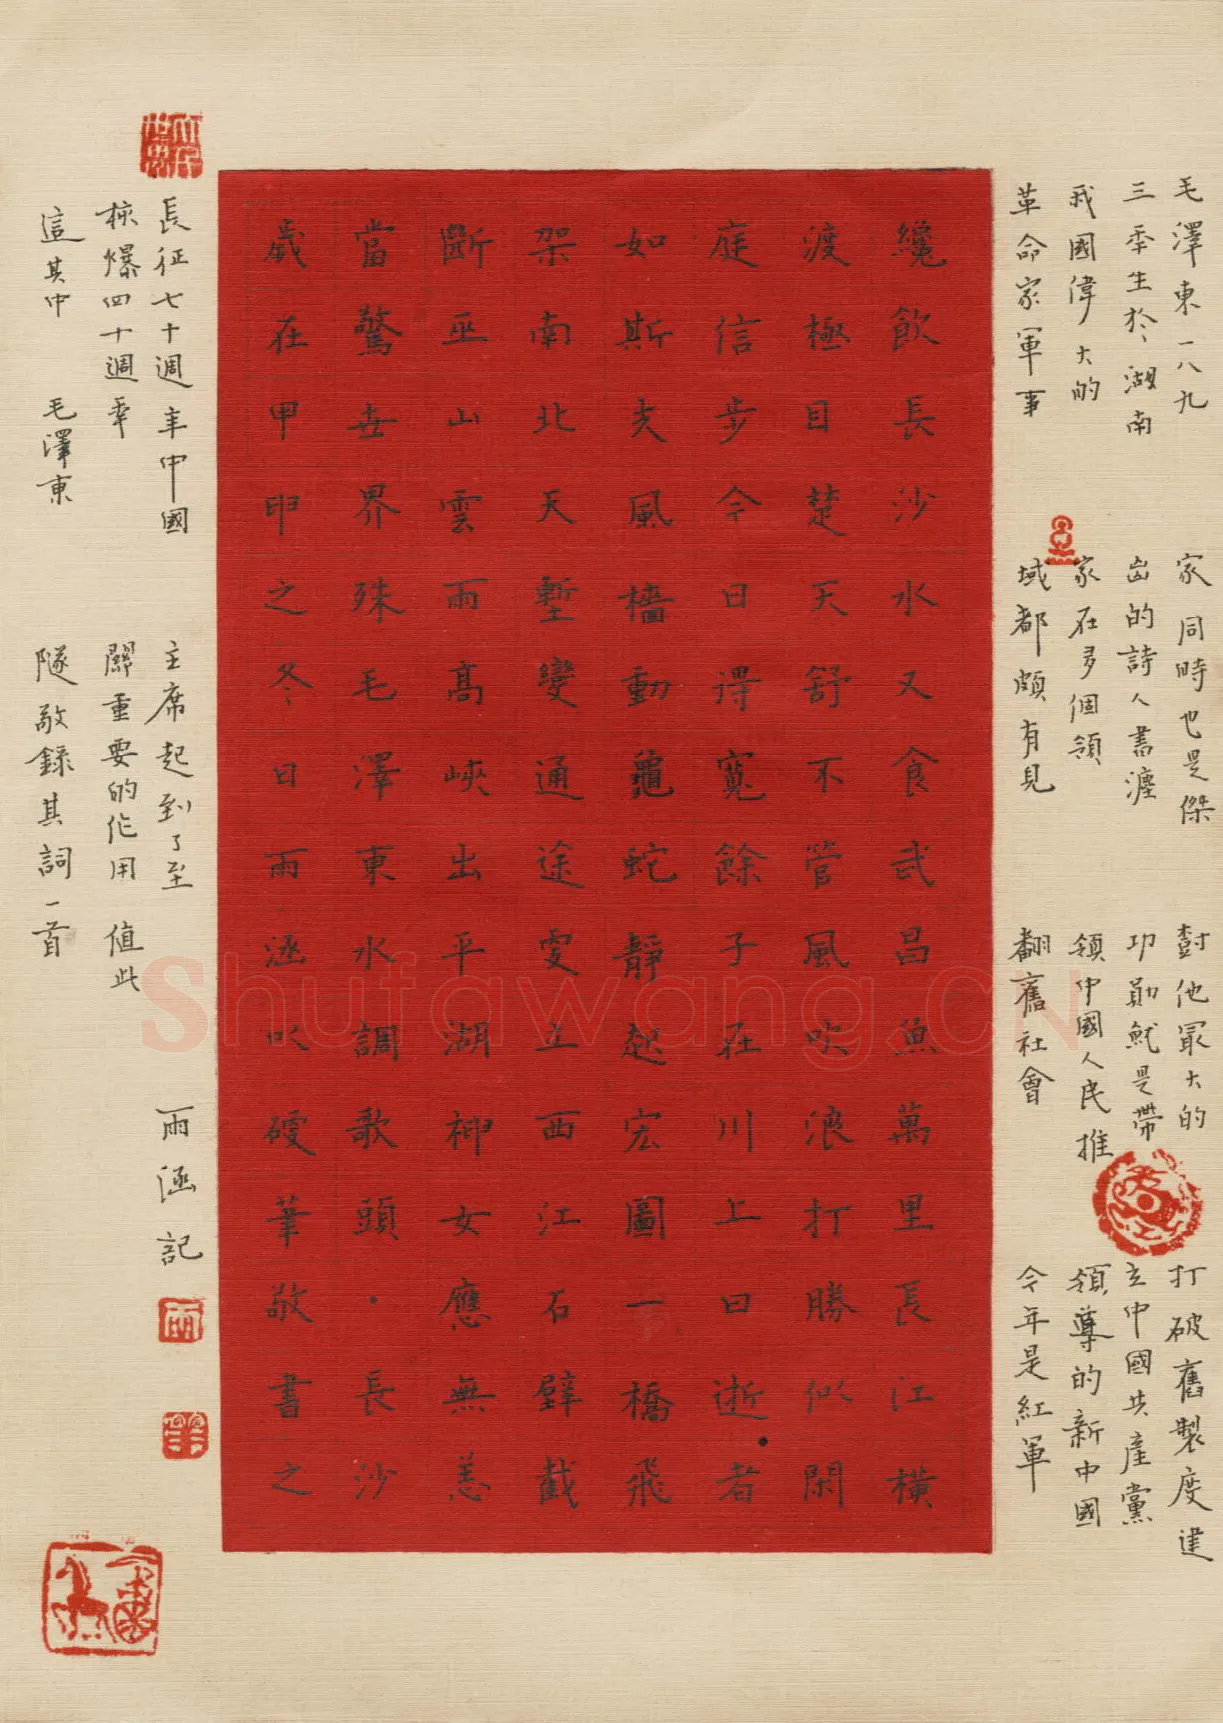 毛澤東一八九
三年生於湖南
我國偉大的
革命家軍事
家同時也是傑
出的詩人書灋
家在多個領
域都頗有見
對他最大的
功勛就是帶
領中國人民推
翻舊社會
打破舊製度建
立中國共產黨
領導的新中國
今年是紅軍
纔飲長沙水又食武昌魚萬里長江橫
渡極目楚天舒不管風吹浪打勝似閑
庭信步今日得寬餘子在川上曰逝者
如斯夫風檣動龜蛇靜起宏圖一橋飛
架南北天塹變通途更立西江石壁截
斷巫山雲雨高峽出平湖神女應無恙
當驚世界殊毛澤東水調歌頭·長沙
歲在甲申之冬日雨涵以硬筆敬書之
長征七十週年中國
核爆四十週年
這其中 毛澤東
主席起到了至
關重要的作用 值此
隧敬錄其詞一首
雨涵記
雨
Shufawang.CN